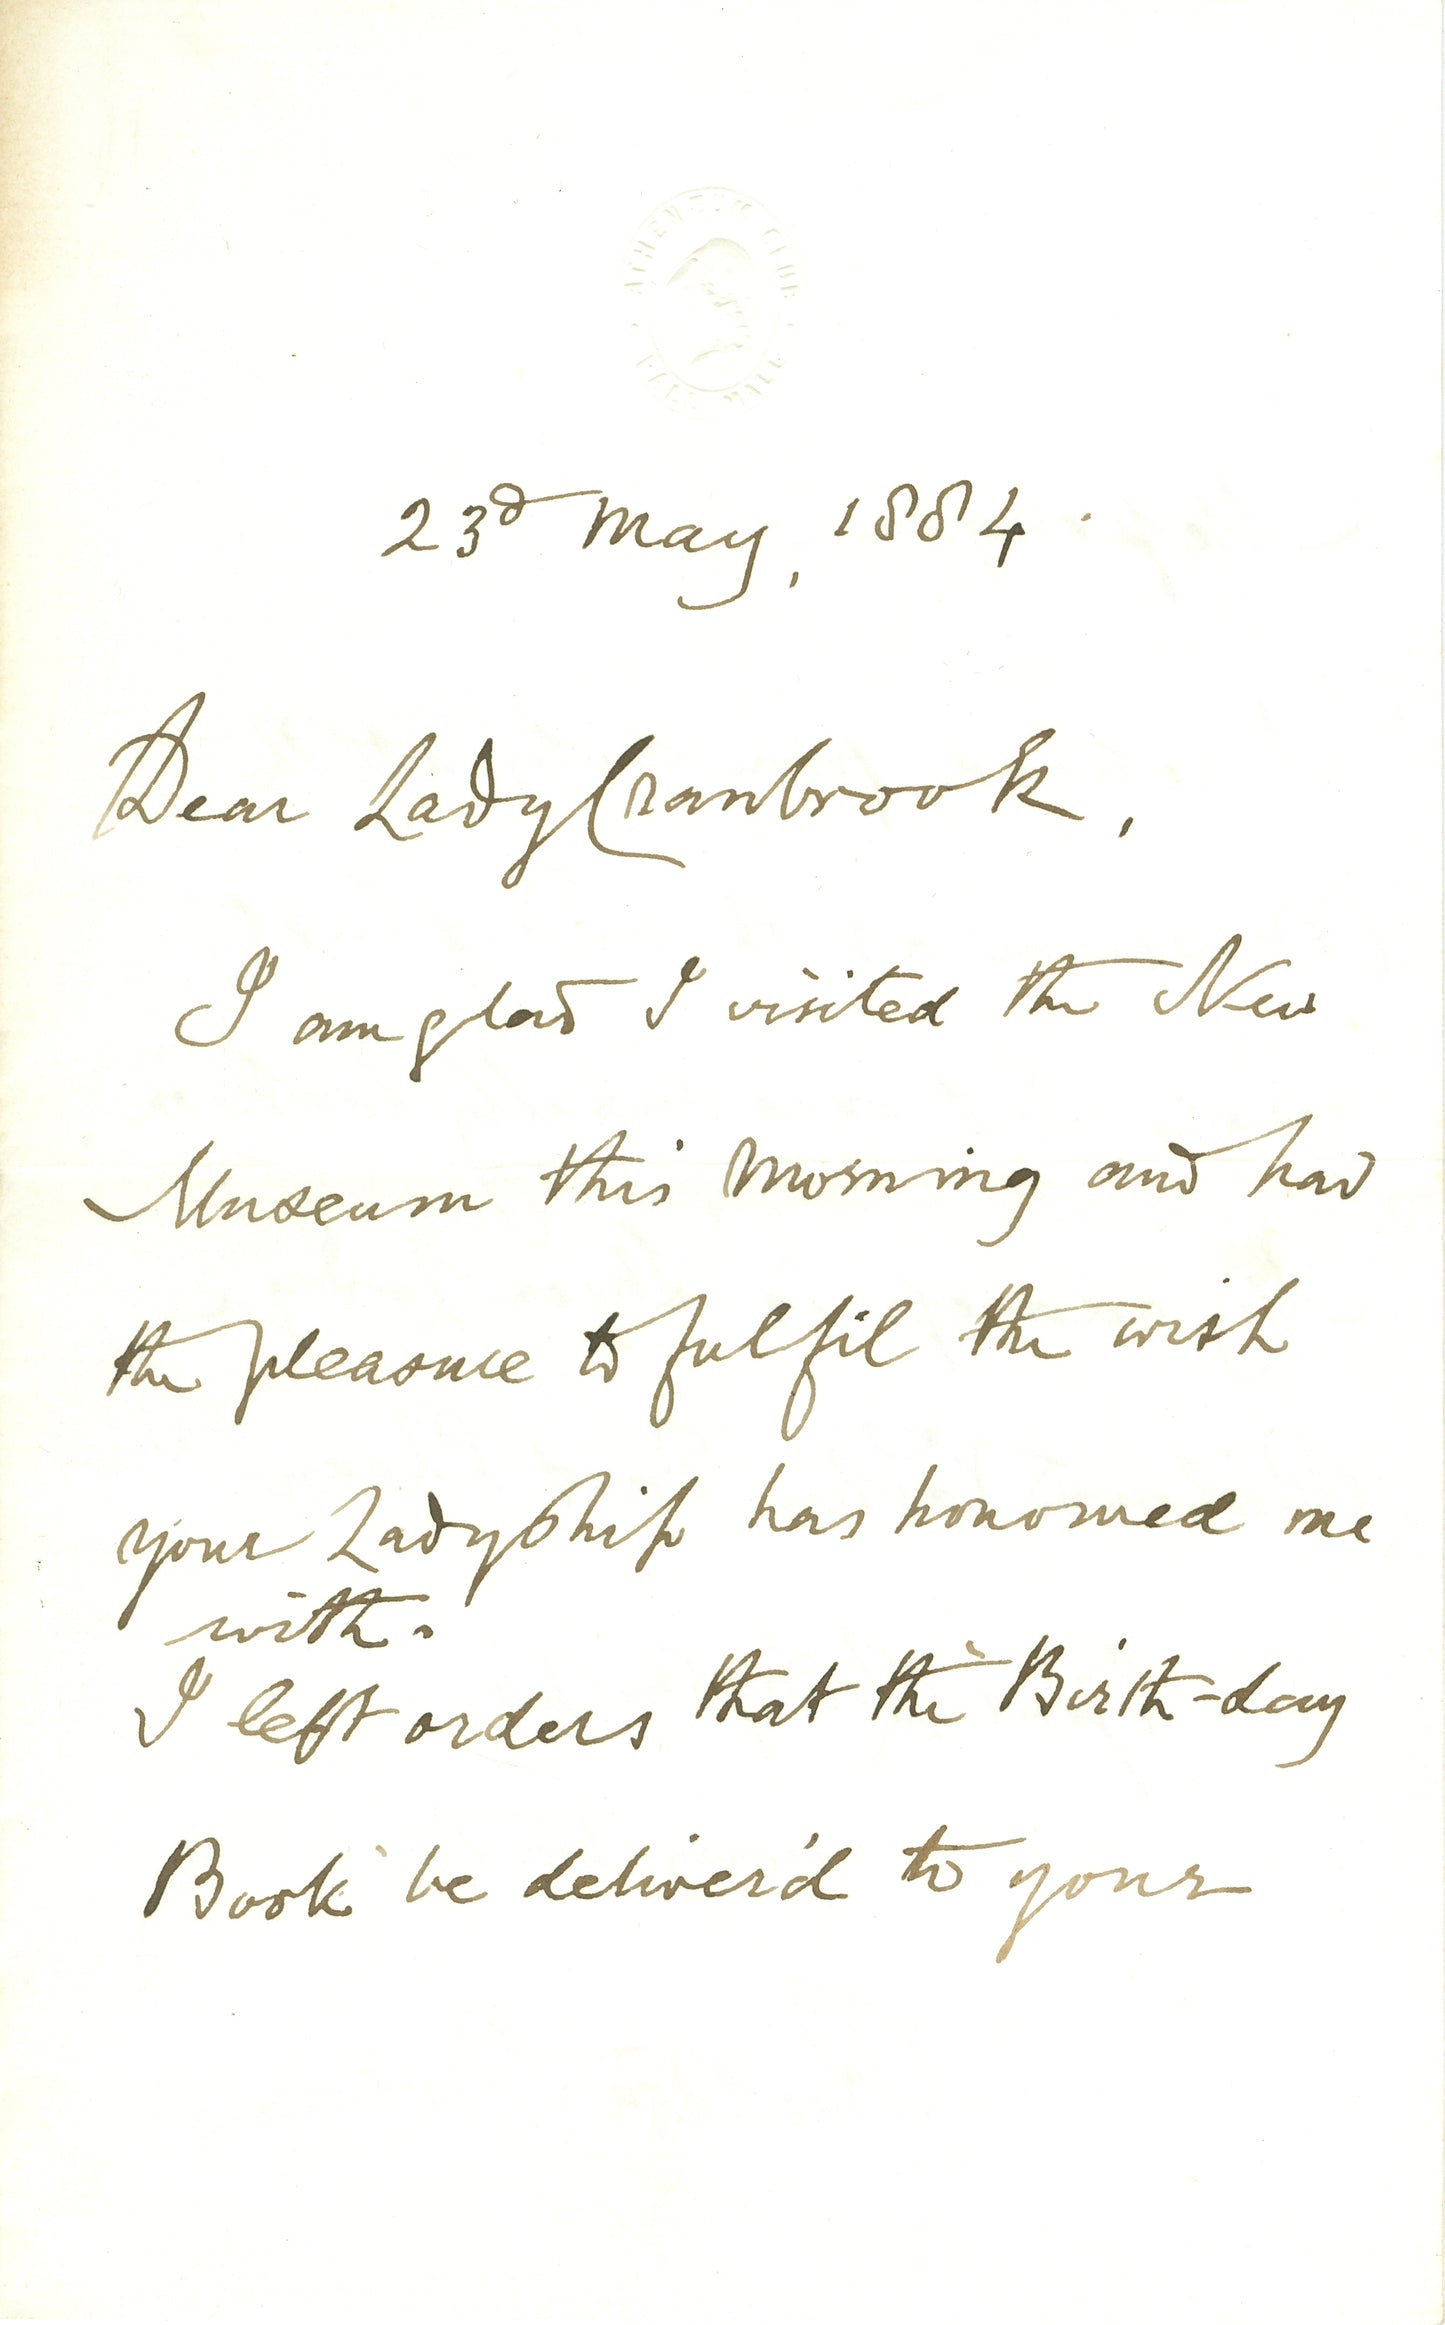 ATHENÆUM CLUB
PALL MALL
23d May, 1884.
Dear Lady Cranbrook,
I am glad I visited the New
Museum this morning and had
the pleasure to fulfil the wish
your Ladyship has honoured me
with.
I left orders that the 'Birth-day
Book' be deliver'd to your